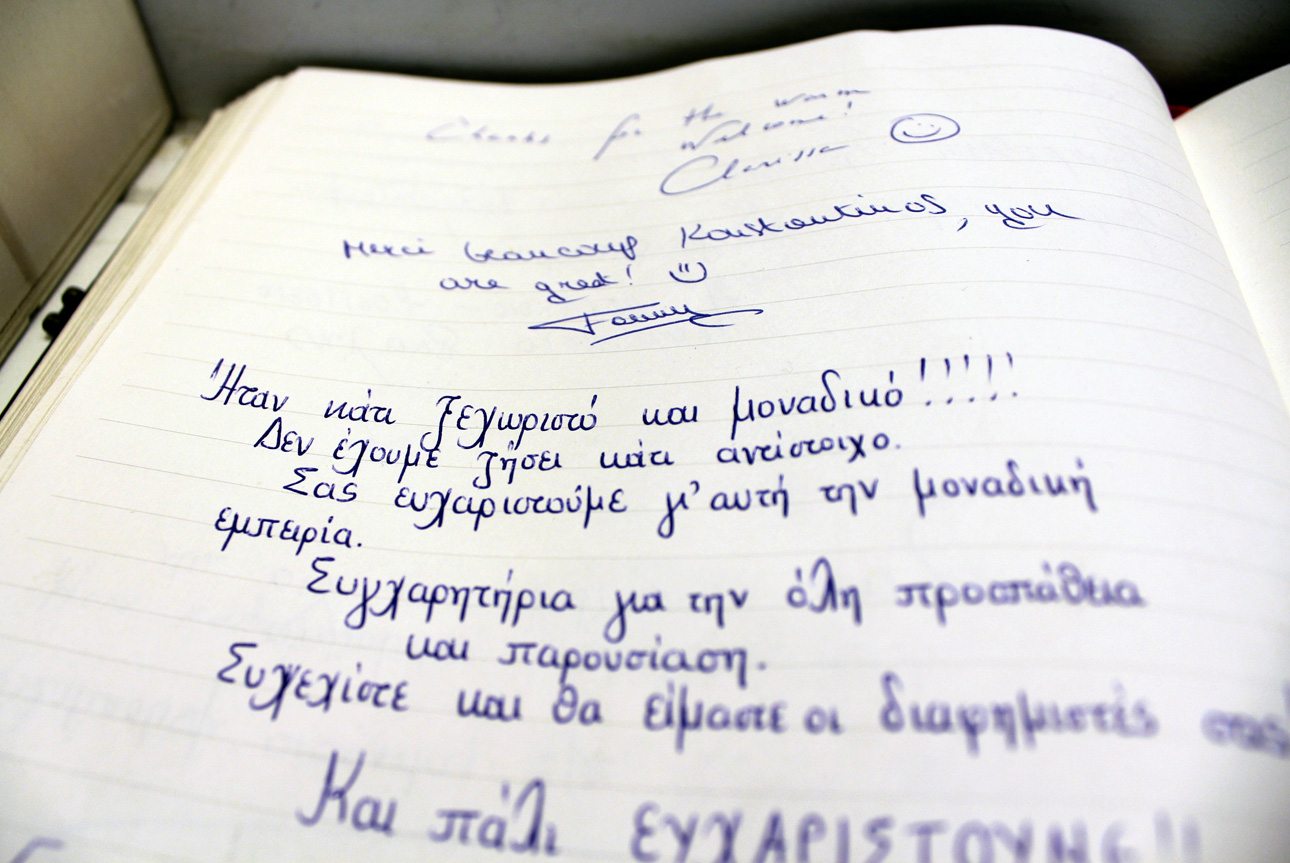 Thanks for the warm
Welcome!
Clarissa
Merci beaucoup Konstantinos, you
are great!
Ήταν κάτι ξεχωριστό και μοναδικό!!!!!
Δεν έχουμε ζήσει κάτι αντίστοιχο.
Σας ευχαριστούμε γι' αυτή την μοναδική
εμπειρία.
Συγχαρητήρια για την όλη προσπάθεια
και παρουσίαση.
Συχεχίστε και θα είμαστε οι διαφημιστές σας!
Και πάλι ΕΥΧΑΡΙΣΤΟΥΜΕ!!